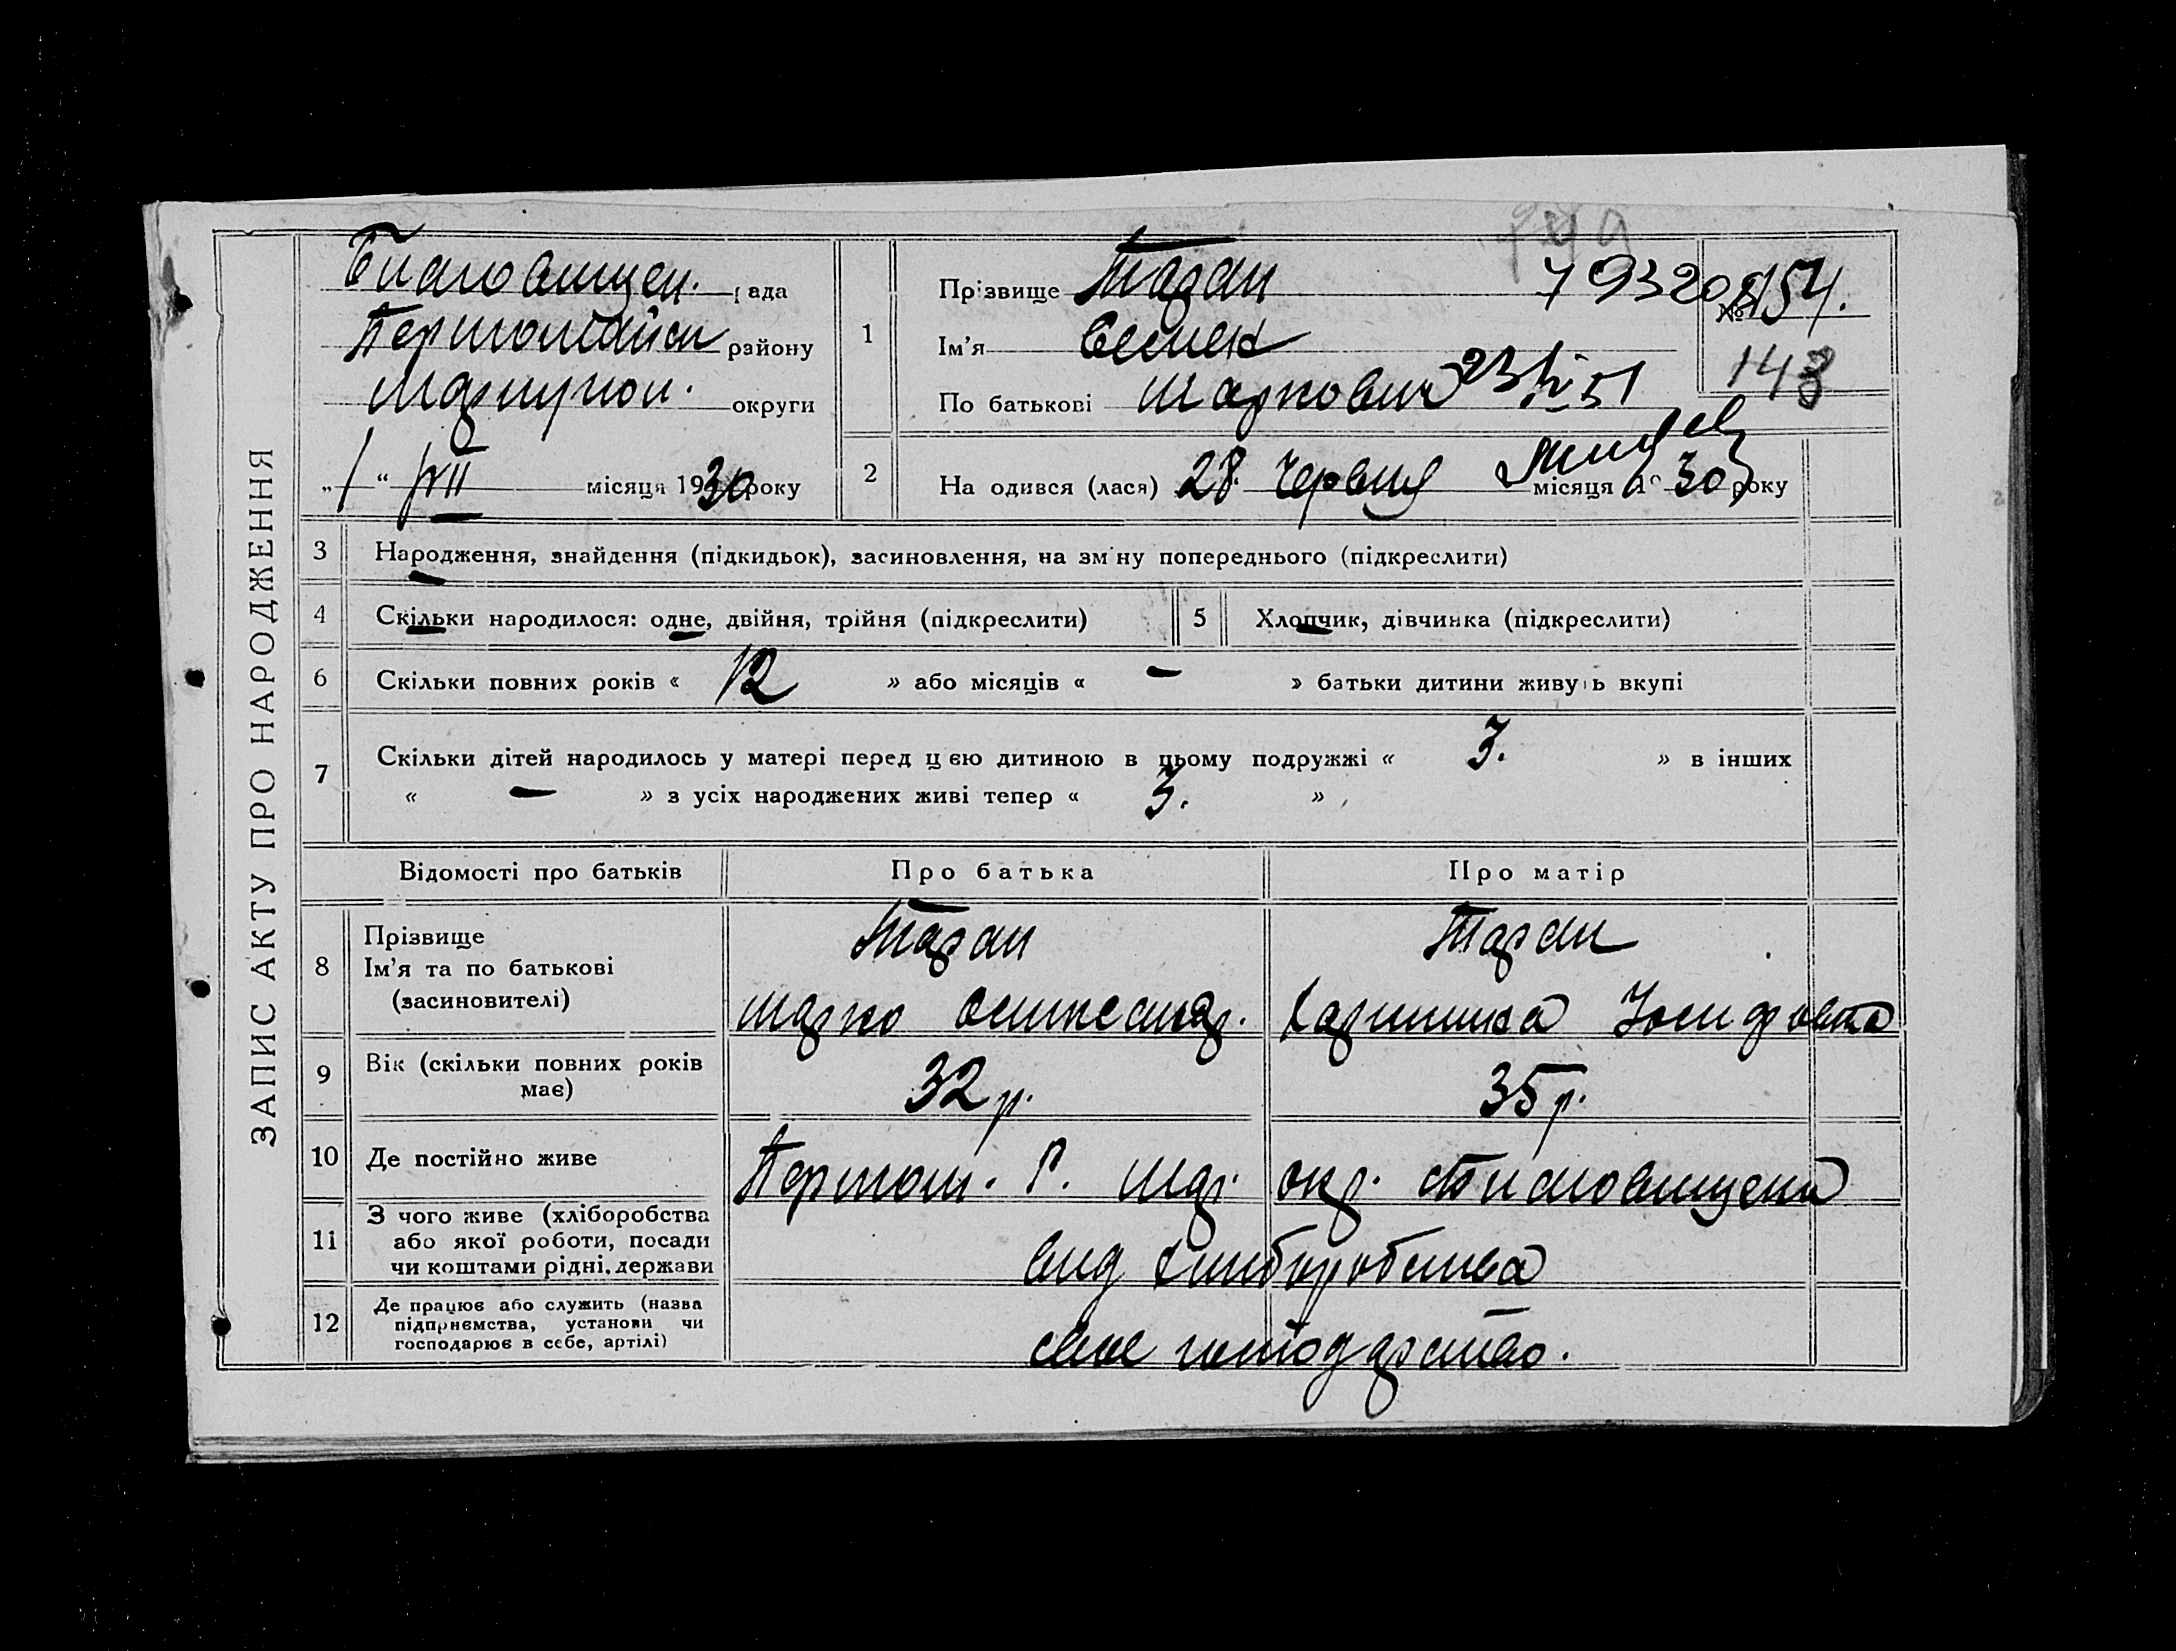 ЗАПИС АКТУ ПРО НАРОДЖЕННЯ
Благовищен. рада
Першомайськ району
Маріупол. округи
„1“ VII місяця 1930 року
1
Прізвище Таран 79320
№ 154.
Ім'я Семен
143
По батькові Маркович 23 51
2
На одився (лася) 28. Червня місяця 30 року
3 Народження, знайдення (підкидьок), засиновлення, на зм ну попереднього (підкреслити)
4 Скільки народилося: одне, двійня, трійня (підкреслити) 5 Хлопчик, дівчинка (підкреслити)
6 Скільки повних років « 12 » або місяців « — » батьки дитини живуть вкупі
7 Скільки дітей народилось у матері перед цею дитиною в цьому подружжі « 3. » в інших
« — » з усіх народжених живі тепер « 3. »
Відомості про батьків Про батька Про матір
8 Прізвище
Ім'я та по батькові
(засновителі)
Таран Таран
Марко Юхимка Йосифовна
9 Вік (скільки повних років
має)
32 р. 35 р.
10 Де постійно живе
Першом. Р. Мар. окр. Благовищенка
11 З чого живе (хліборобства
або якої роботи, посади
чи коштами рідні, держави
вид хлиборобства
12 Де працює або служить (назва
підприємства, установи чи
господарює в себе, артілі)
свое господарство.